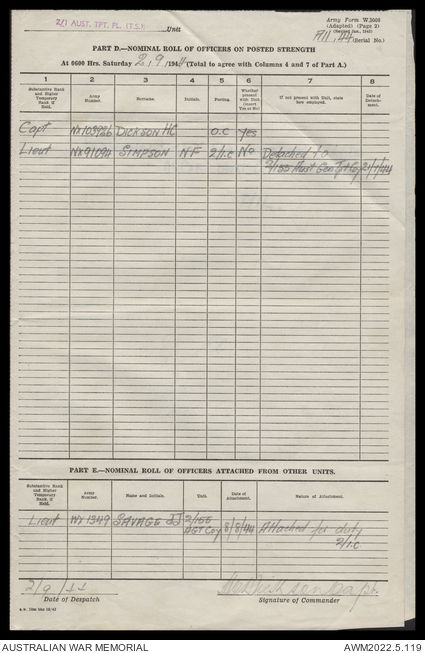 2/1 AUST. TPT. PL. (T.S.)
Unit
Army Form W.3009
(Adapted) (Page 2)
(Revised Jan., 1943)
(Serial No.)
PART D.—NOMINAL ROLL OF OFFICERS ON POSTED STRENGTH
At 0600 Hrs. Saturday 2/9/1944 (Total to agree with Columns 4 and 7 of Part A.)
1 2 3 4 5 6 7 8
Substantive Rank and Higher Temporary Rank if Held.
Army Number.
Surname.
Initials.
Posting.
Whether present with Unit. (Insert Yes or No)
If not present with Unit, state how employed.
Date of Detachment.
Capt NX103926 DICKSON HC O.C Yes
Lieut NX91094 SIMPSON NF 2/i.c No Detached to
2/155 Aust Gen Tpt Coy
PART E.—NOMINAL ROLL OF OFFICERS ATTACHED FROM OTHER UNITS.
Substantive Rank and Higher Temporary Rank, if Held.
Army Number.
Name and Initials.
Unit.
Date of Attachment.
Nature of Attachment.
Lieut WX1349 SAVAGE JJ 2/155
AGT Coy 8/8/44 Attached for duty
2/i.c.
2/9/44
Date of Despatch
Signature of Commander
AUSTRALIAN WAR MEMORIAL
AWM2022.5.119